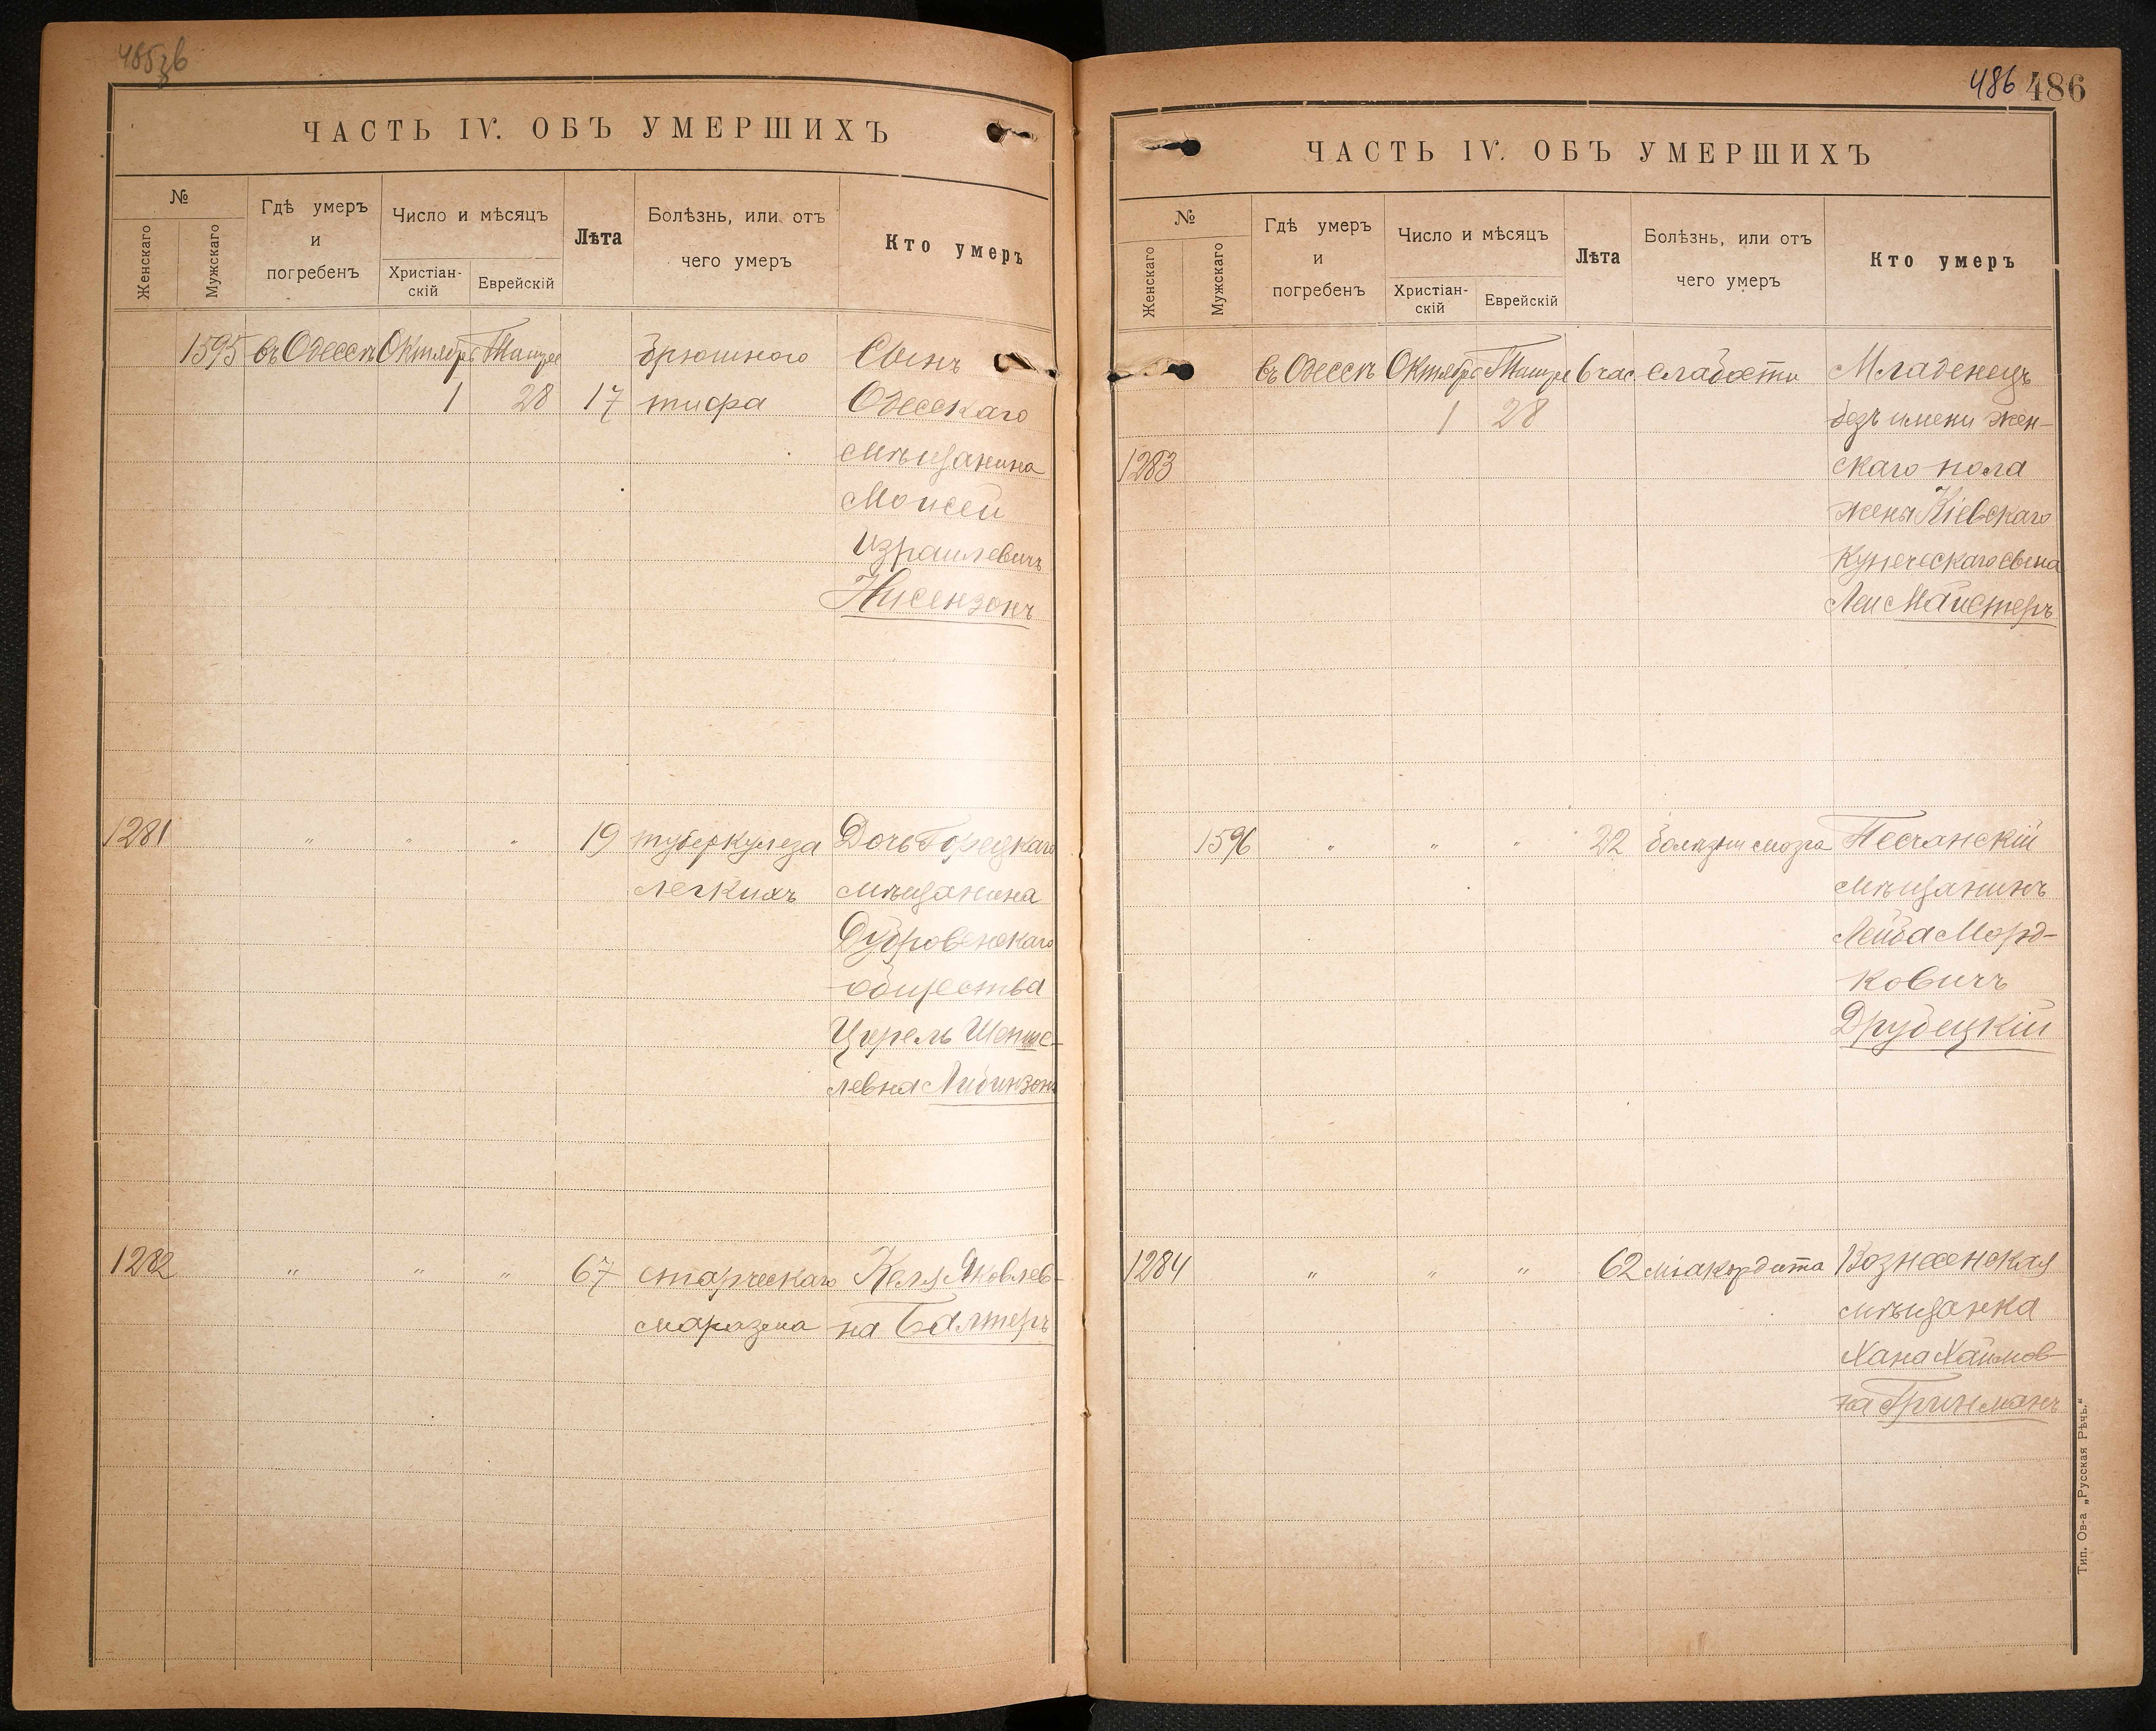 485зв
ЧАСТЬ IV. ОБЪ УМЕРШИХЪ
№
Женскаго
Мужскаго
Гдѣ умеръ
и
погребенъ
Число и мѣсяцъ
Христіан-
скій
Еврейскій
Лѣта
Болѣзнь, или отъ
чего умеръ
Кто умеръ
1595 въ Одессѣ Октября Тишре брюшного Сынъ
1 28 17 тифа Одесскаго
мѣщанина
Моисей
Израилевичъ
Нисензонъ
1281 " " " 19 туберкулеза Дочь Горецкаго
легкихъ мѣщанина
Дубровенскаго
общества
Цирель Шепше-
левна Либинзонъ
1282 " " " 67 старческаго Келя Яковлев-
маразма на Балтеръ
486 486
ЧАСТЬ IV. ОБЪ УМЕРШИХЪ
№
Женскаго
Мужскаго
Гдѣ умеръ
и
погребенъ
Число и мѣсяцъ
Христіан-
скій
Еврейскій
Лѣта
Болѣзнь, или отъ
чего умеръ
Кто умеръ
въ Одессѣ Октября Тишре 6 час. слабости Младенецъ
1 28 безъ имени жен-
1283 скаго пола
жены Кіевскаго
купеческаго сына
Леи Майстеръ
1596 " " " 22 болѣзни мозга Песчанскій
мѣщанинъ
Лейба Морд-
ковичъ
Друбецкій
1284 " " " 62 міакордита Вознесенская
мѣщанка
Хана Хаимов-
на Гринманъ
Тип. Ов-а „Русская Рѣчь."